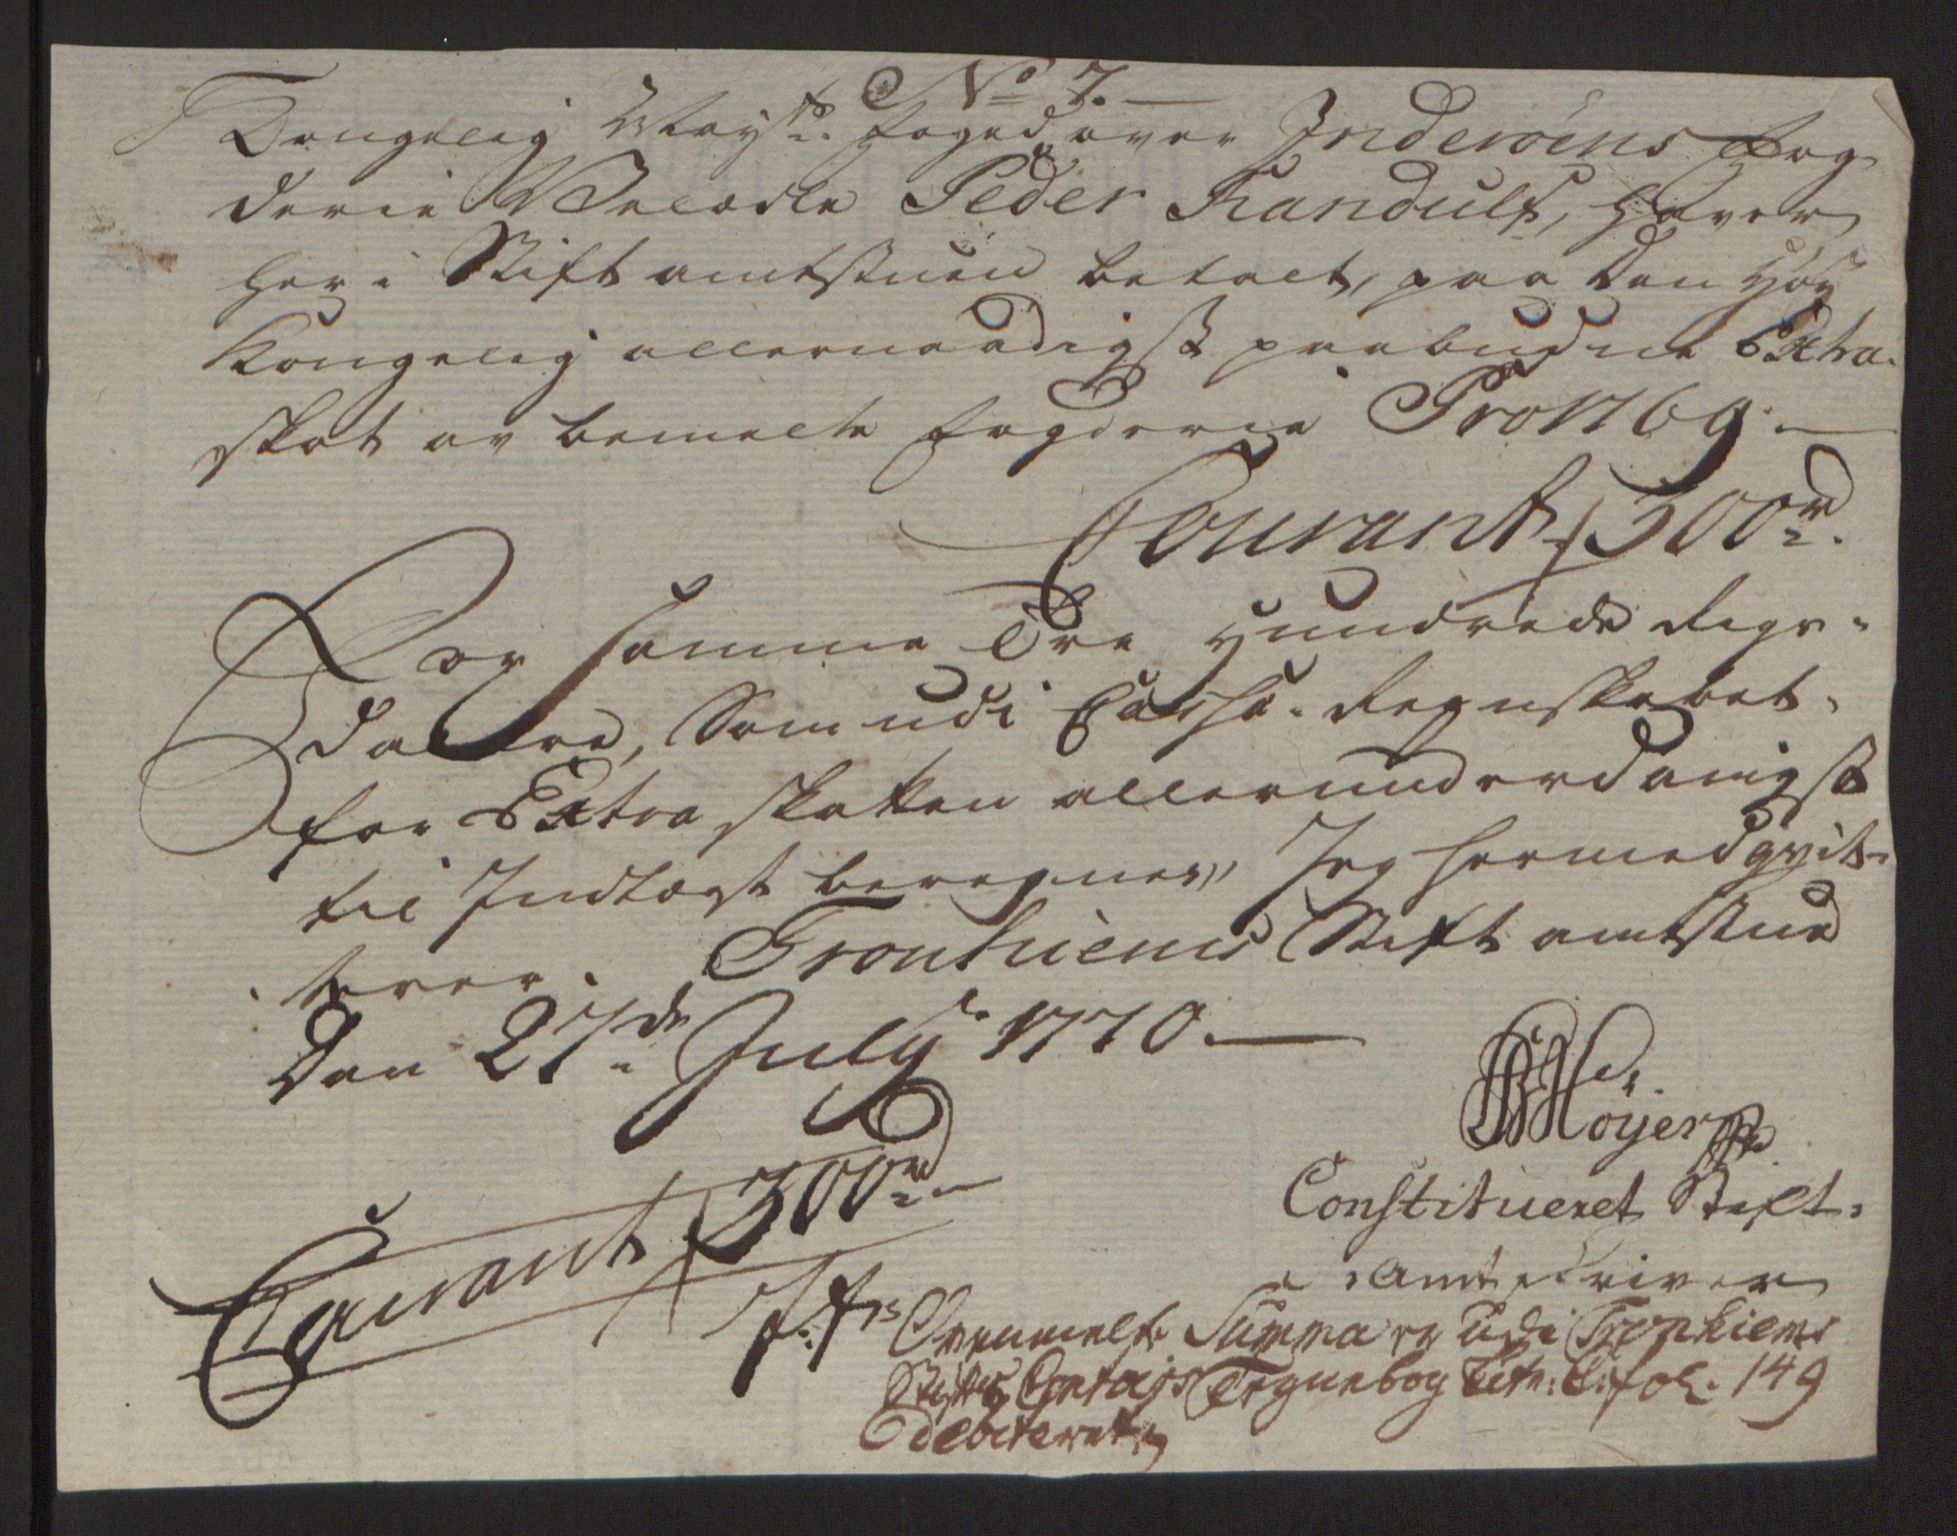 No 7.
Kongelig Mayts. foged over Inderöens fog-
derie Velædle Peder Randulf, haver
her i Stiftamtstuen betalt, paa den høy
Kongelig allernaadigst paabudene Extra-
skat av bemelte fogderie Pro 1769.
Courant 300 rd.
For samme Tre Hundrede Rigs-
dalere, Som udi Cassa-Regnskabet
for Extra skatten allerunderdanigst
til Indtægt beregnes, Jeg hermed qvit-
terer. Tronhiems Stiftamtstue
Den 27de July 1770.
Höyer
Constitueret Stift-
amtskriver
Courant 300 rd.
Ovenmelte Summa er udi Tronhiems
Stifts Contoirs Tegnebog Litr: C: fol. 149
debiteret